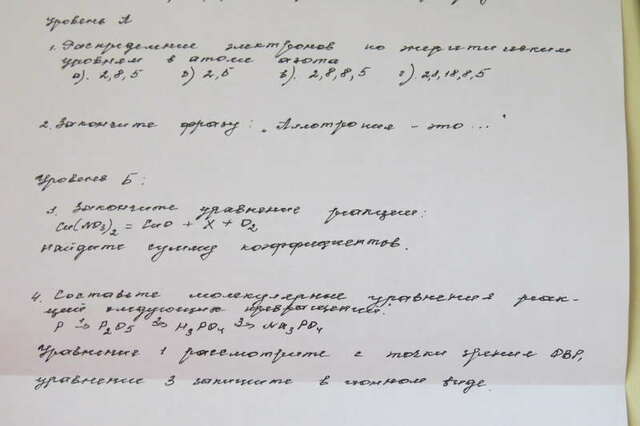 Уровень А
1. Распределение электронов по энергетическим
уровням в атоме азота
а). 2,8,5 б) 2,5 в). 2,8,8,5 г). 2,8,18,8,5
2. Закончите фразу: „Аллотропия - это..."
Уровень Б:
3. Закончите уравнение реакции:
Cu(NO3)2 = CuO + X + O2
Найдите сумму коэффициентов.
4. Составьте молекулярные уравнения реак-
ций следующих превращений:
P 1→ P2O5 2→ H3PO4 3→ Na3PO4
Уравнение 1 рассмотрите с точки зрения ОВР,
уравнение 3 запишите в ионном виде.